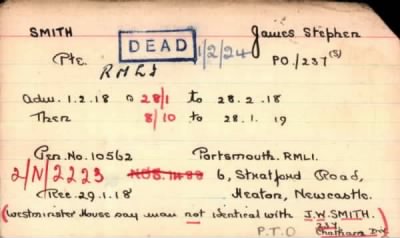 SMITH James Stephen
DEAD 1/2/24
Pte. PO./237(S)
RMLI
Adm. 1.2.18 @ 28/1 to 28.2.18
Then 8/10 to 28.1.19
Pen. No. 10562 Portsmouth. RMLI.
2/N/2223 6, Stratford Road,
Rec. 29.1.18 Heaton, Newcastle.
(Westminster House say man not identical with J.W. SMITH.)
P.T.O Chatham Div